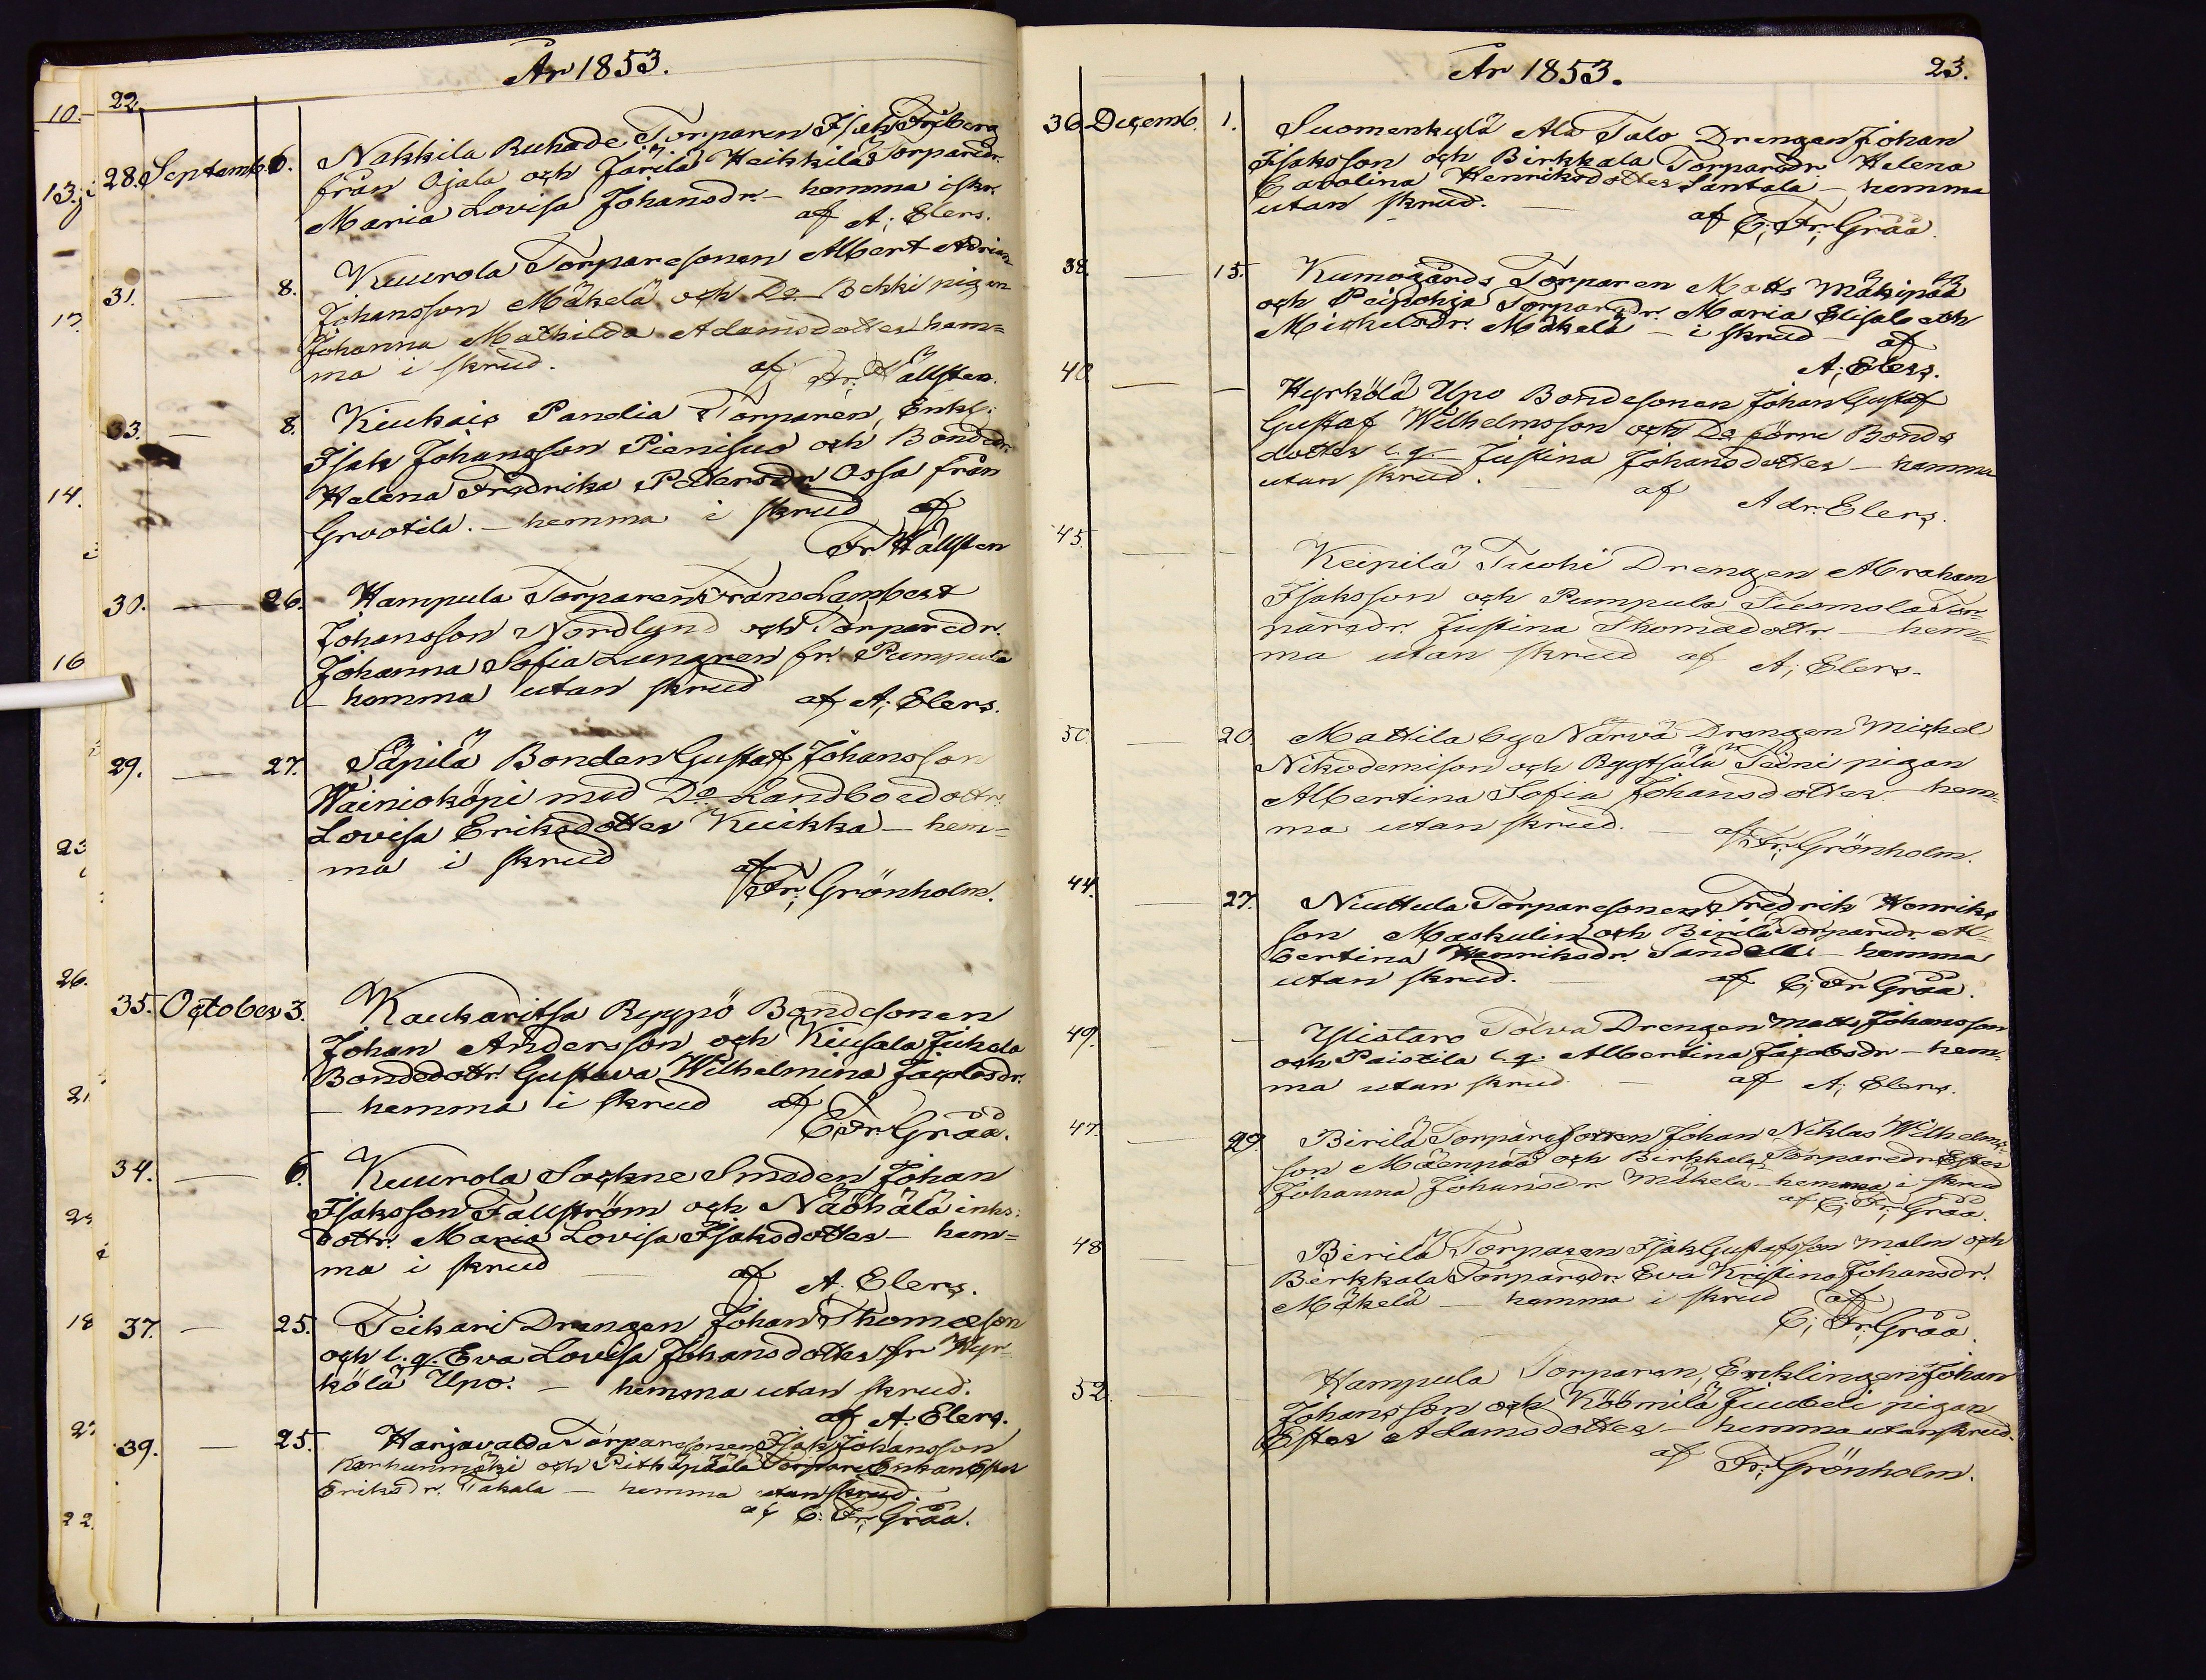 År 1853.
22.
28. Septemb. 6. Nakkila Ruhade Torparen Isak Friberg
från Ojala och Järilä Heikkilä Torparedr.
Maria Lovisa Johansdr. – hemma i skr.
af A; Elers.
31. — 8. Kuurola Torparesonen Albert Adrian
Johansson Mäkelä och Do Bekki pigan
Johanna Mathilda Adamsdotter hem=
ma i skrud. af Fr. Hällsten.
33. — 8. Kiukais Panelia Torparen, Enkl.
Isak Johansson Pienisuo och Bondedr.
Helena Fredrika Petersdr Ossa från
Grootila. – hemma i skrud af
Fr Hällsten
30. — 26. Hampula Torparen Frans Lambert
Johansson Nordlund och Torparedr.
Johanna Sofia Lungren fr. Pumpula
– hemma utan skrud af A; Elers.
29. — 27. Säpilä Bonden Gustaf Johansson
Wainioköpi med Do Landboedottr.
Lovisa Eriksdotter Kuikka – hem=
ma i skrud af
Fr; Grönholm.
35. October 3. Kaukaritsa Ryyppö Bondesonen
Johan Andersson och Kiusala Jukola
Bondedottr. Gustava Wilhelmina Jacobsdr.
– hemma i skrud af
C Fr. Gråå.
34. — 6. Kuurola Sockne Smeden Johan
Isaksson Fallström och Näöhälä inhs.
dottr. Maria Lovisa Isaksdotter – hem=
ma i skrud — af A. Elers.
37. — 25. Teikari Drengen Johan Thomasson
och l. q. Eva Lovisa Johansdotter fr Hyr=
kölä Upo. – hemma utan skrud.
af A. Elers.
39. — 25. Harjavalda Torparesonen Isak Johansson
Karhunmäki och Pitkäpäälä Torpare Enkan Ester
Eriksdr. Takala – hemma utan skrud.
af C. Fr; Gråå.
10.
13.
14.
16
23
26.
21
18
22.
År 1853. 23.
36. Decemb. 1. Suomenkylä Ala Talo Drengen Johan
Isaksson och Birkkala Torparedr. Helena
Carolina Henriksdotter Santala – hemma
utan skrud. — af C; Fr; Gråå.
38. — 15. Kumogårds Torparen Matts Mäkipää
och Peipohja Torparedr. Maria Elisabeth
Mickelsdr. Mäkelä – i skrud – af
A; Elers.
40. — – Hyrkölä Upo Bondesonen Johan Gustaf
Gustaf Wilhelmsson och Do förre Bonde
dotter l. q. Justina Johansdotter – hemma
utan skrud. — af Adr. Elers.
45. — – Keipilä Tuohi Drengen Abraham
Isaksson och Pumpula Tuomola Tor=
paredr. Justina Thomædottr. – hem=
ma utan skrud af A; Elers.
50. — 20. Mattila by Närvä Drengen Michel
Nikodemison och Ryytsälä Teini pigan
Albertina Sofia Johansdotter – hem=
ma utan skrud. — af Fr; Grönholm.
44. — 27. Niuttula Torparesonen Fredrik Henriks
son Maskulin och Birilä Torparedr. Al=
bertina Henriksdr. Sandell – hemma
utan skrud. — af C; Fr Gråå.
49. — – Ylistaro Tolva Drengen Matts Johansson
och Paistila l. q. Albertina Jacobsdr – hem=
ma utan skrud — af A; Elers.
47. — 29. Birilä Torparesonen Johan Niklas Wilhelms=
son Mäenpää och Birkkala Torparedr Ester
Johanna Johansdr Mäkelä – hemma i skrud
af C; Fr; Gråå.
48 — – Birilä Torparen Isak Gustafsson Malm och
Birkkala Torparedr. Eva Kristina Johansdr.
Mäkelä – hemma i skrud af
C; Fr; Gråå.
52. — Hampula Torparen, Enklingen Johan
Johansson och Köömilä Juubeli pigan
Ester Adamsdotter – hemma utan skrud.
af Fr; Grönholm.